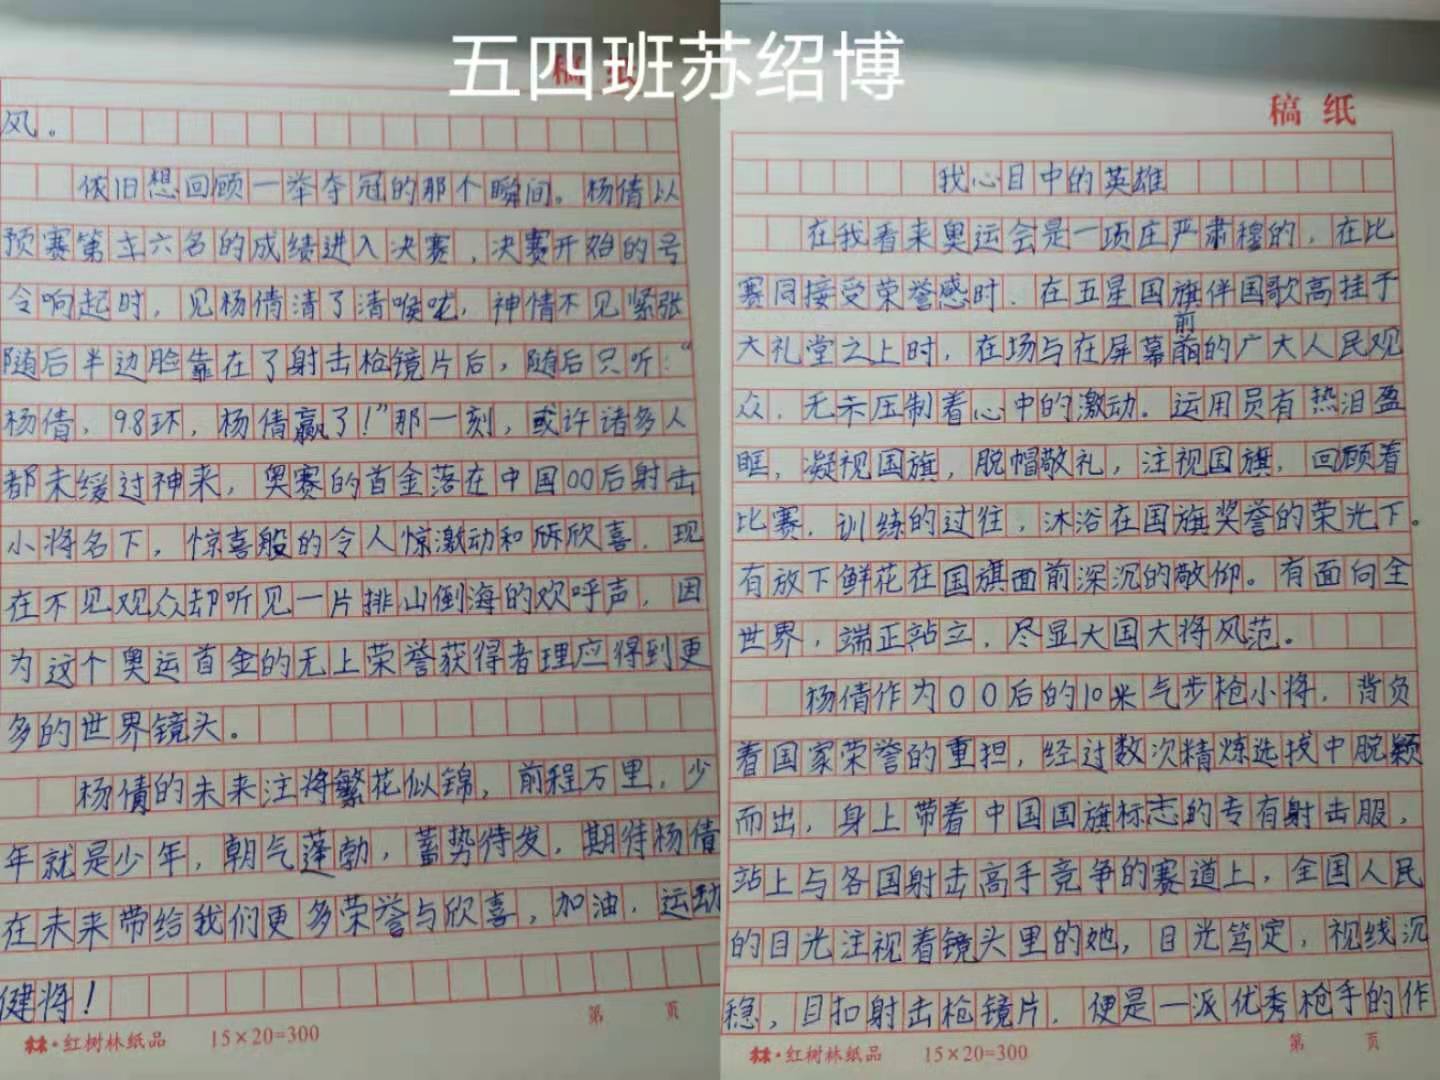 五四班苏绍博
稿纸
我心目中的英雄
在我看来奥运会是一项庄严肃穆的，在比
赛同接受荣誉感时，在五星国旗伴国歌高挂于
前
大礼堂之上时，在场与在屏幕前的广大人民观
众，无示压制着心中的激动。运用员有热泪盈
眶，凝视国旗，脱帽敬礼，注视国旗，回顾着
比赛，训练的过往，沐浴在国旗奖誉的荣光下。
有放下鲜花在国旗面前深沉的敬仰。有面向全
世界，端正站立，尽显大国大将风范。
杨倩作为00后的10米气步枪小将，背负
着国家荣誉的重担，经过数次精炼选拔中脱颖
而出，身上带着中国国旗标志的专有射击服，
站上与各国射击高手竞争的赛道上，全国人民
的目光注视着镜头里的她，目光笃定，视线沉
稳，目扣射击枪镜片，便是一派优秀枪手的作
第 页
红树林纸品 15×20=300
稿纸
风。
依旧想回顾一举夺冠的那个瞬间。杨倩以
预赛第六名的成绩进入决赛，决赛开始的号
令响起时，见杨倩清了清喉咙，神情不见紧张
随后半边脸靠在了射击枪镜片后，随后只听：“
杨倩，9.8环，杨倩赢了！”那一刻，或许诸多人
都未缓过神来，奥赛的首金落在中国00后射击
小将名下，惊喜般的令人惊激动和欣喜，现
在不见观众却听见一片排山倒海的欢呼声，因
为这个奥运首金的无上荣誉获得者理应得到更
多的世界镜头。
杨倩的未来注将繁花似锦，前程万里，少
年就是少年，朝气蓬勃，蓄势待发，期待杨倩
在未来带给我们更多荣誉与欣喜，加油，运动
健将！
第 页
红树林纸品 15×20=300